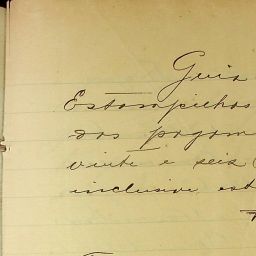 Guia
Estampilhas
dos pagam
vinte e seis (
inclusive est